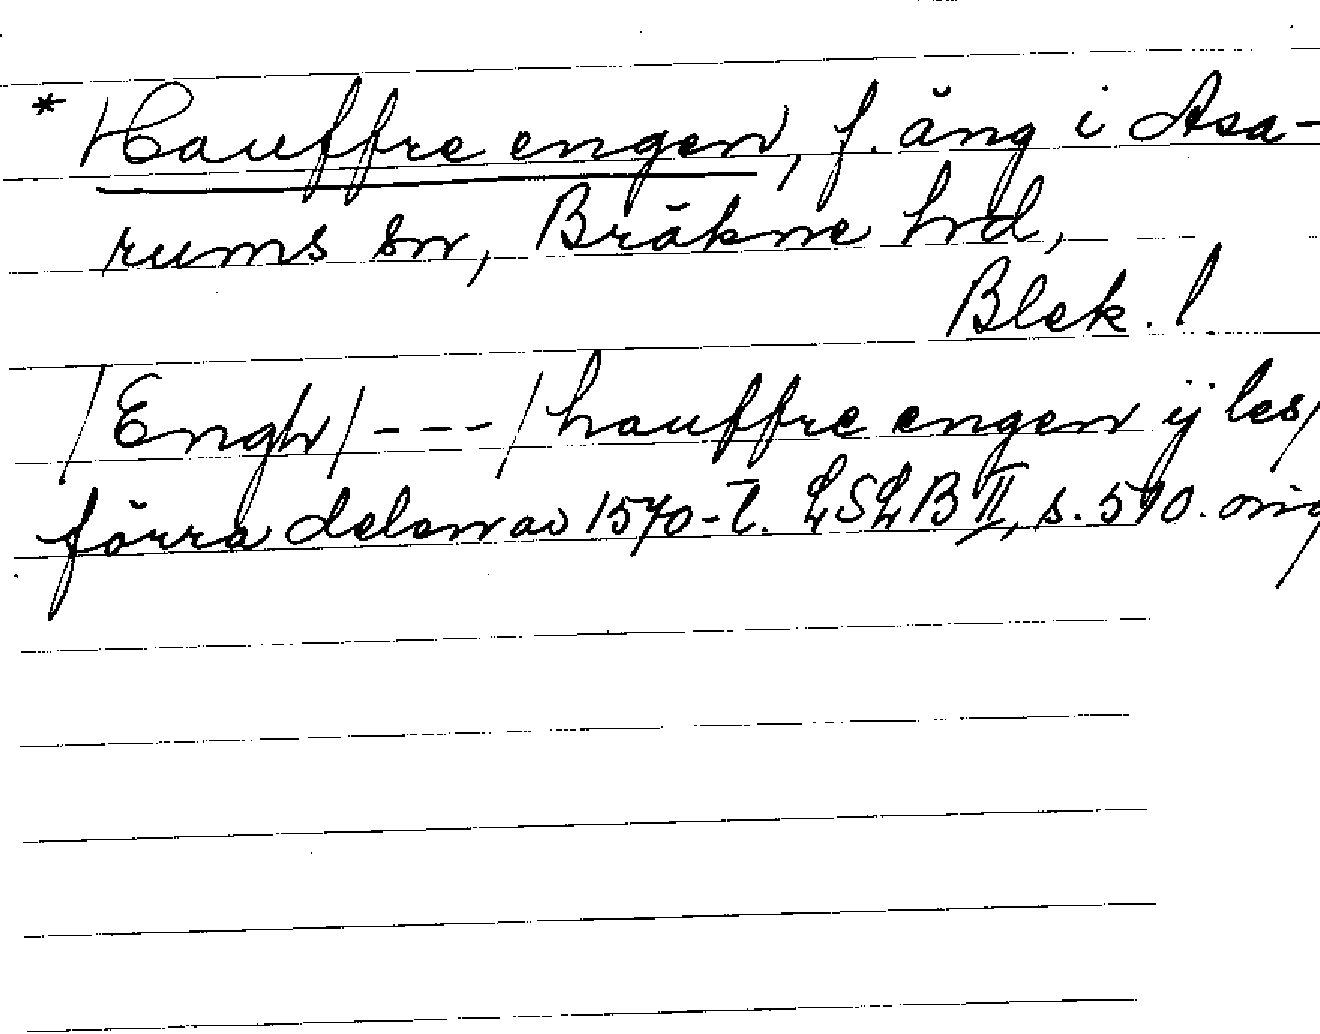 * Hauffre engen, f. äng i Asa-
rums sn, Bräkne hd,
Blek. l.
/Engh/ - - - /hauffre engen ij les/
förra delen av 1570-t. LSLB II, s. 510. orig